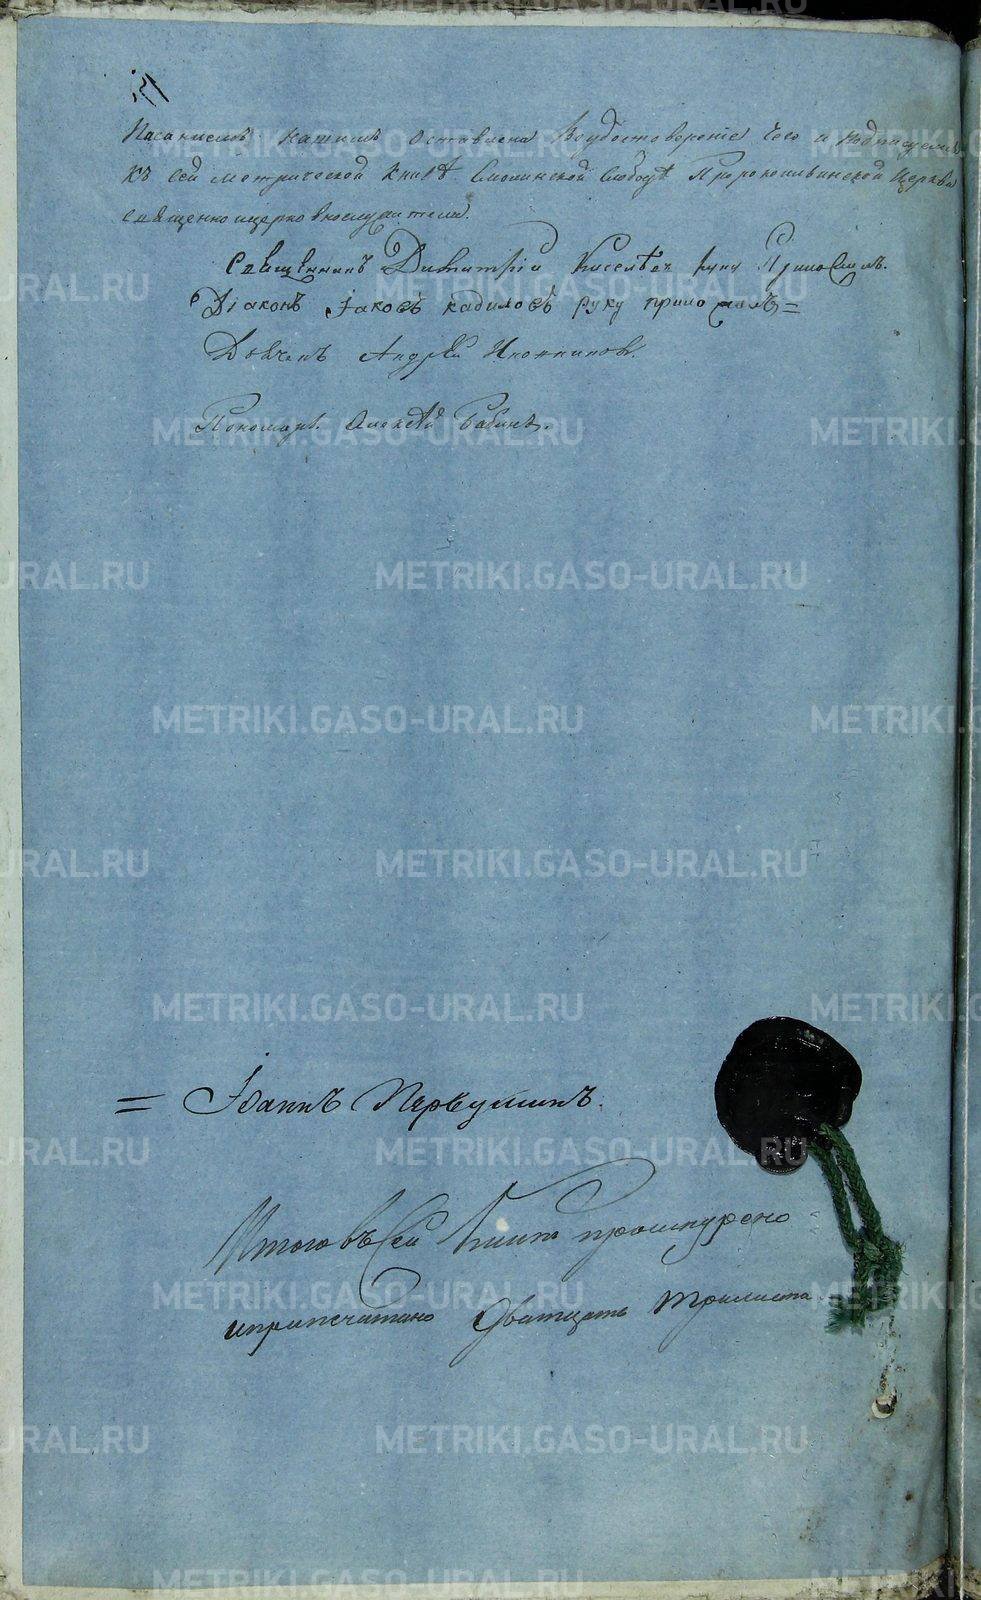 оставлена Воудостоверенїе Чего и подписуемся
Къ Сей метрической Книгѣ Слободѣ Пророкоильинской Церкви
священно ицерковнослужители.
Священникъ Димитрїй Киселевъ руку Приложилъ.
Дїаконъ Їаковъ кадиловъ руку приложилъ =
Дьячекъ Андрей Иконников.
Пономарь Алексѣй Бабинъ.
= Їоаннъ Первушинъ.
Итого въ Сей Книгѣ прошнурено
иприпечатано Дватцать трилиста
METRIKI.GASO-URAL.RU